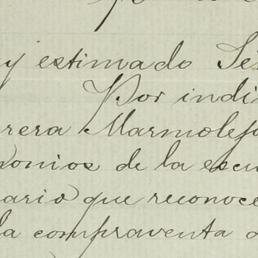 y estimado Se
Por indi
rera Marmolejo
onios de la escri
ario que reconoce
la compraventa